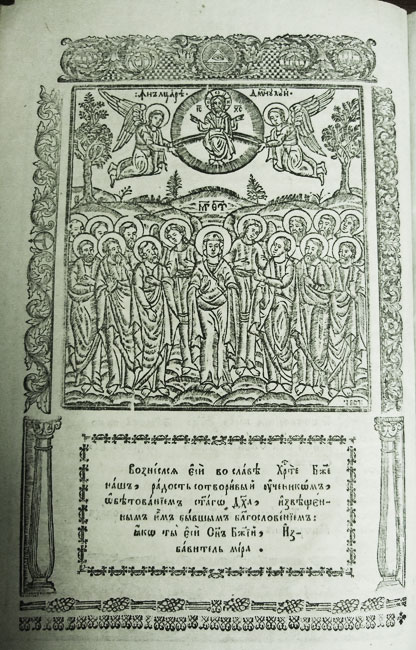 ІС ХС
МР ѲУ
Вознеслся єси во славѣ Хрⷭ҇те Бж҃е
нашъ, радость сотворивый ᲂу҆ченикѡмъ,
ѡбѣтованїемъ ст҃агѡ Дх҃а, извѣщен-
нымъ имъ бывшымъ бл҃гословенїемъ:
ꙗкѡ ты єси Сн҃ъ Бж҃їй, Из-
бавитель мїра.